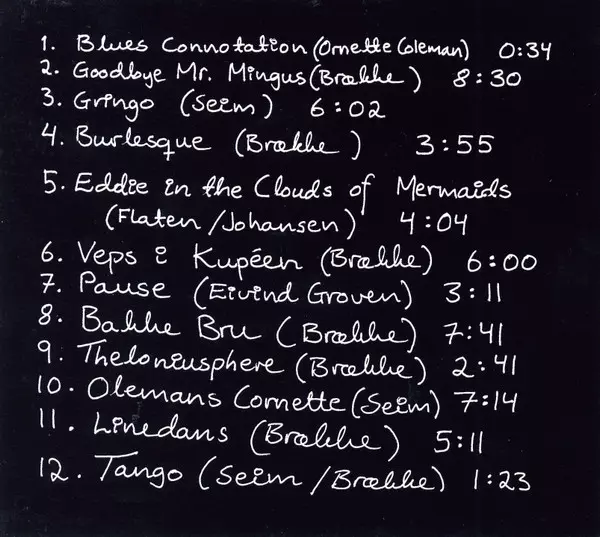 1. Blues Connotation (Ornette Coleman) 0:34
2. Goodbye Mr. Mingus (Brække) 8:30
3. Gringo (Seim) 6:02
4. Burlesque (Brække) 3:55
5. Eddie in the Clouds of Mermaids
(Flaten/Johansen) 4:04
6. Veps i Kupéen (Brække) 6:00
7. Pause (Eivind Groven) 3:11
8. Bakke Bru (Brække) 7:41
9. Theloniusphere (Brække) 2:41
10. Olemans Cornette (Seim) 7:14
11. Linedans (Brække) 5:11
12. Tango (Seim/Brække) 1:23